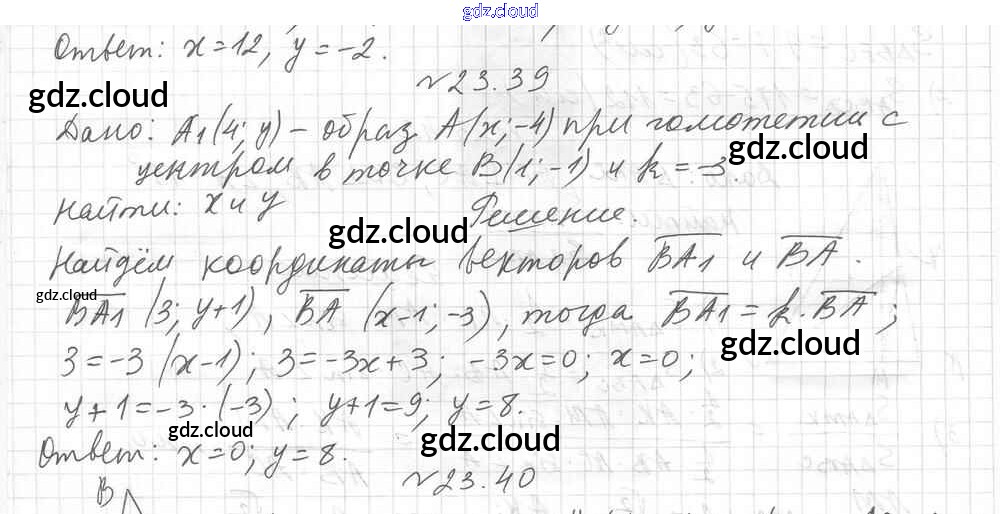 gdz.cloud
Ответ: x=12, y=-2.
№23.39
gdz.cloud
Дано: A1(4; y) – образ A(x; -4) при гомотетии с
центром в точке B(1; -1) и k = -3.
gdz.cloud
Найти: x и y
Решение.
gdz.cloud
Найдём координаты векторов BA1 и BA.
gdz.cloud
BA1 (3; y+1), BA (x-1; -3), тогда BA1 = k·BA;
gdz.cloud
3=-3(x-1); 3=-3x+3; -3x=0; x=0;
y+1=-3·(-3); y+1=9; y=8.
gdz.cloud
gdz.cloud
Ответ: x=0; y=8.
№23.40
B